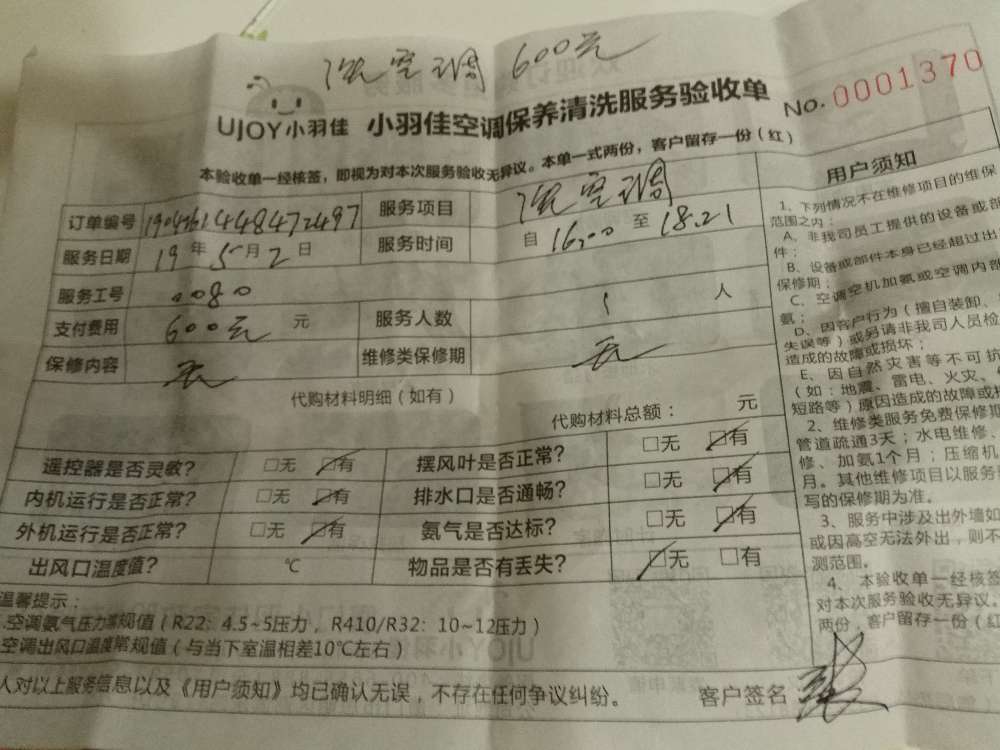 洗空调 600元
UJOY小羽佳 小羽佳空调保养清洗服务验收单
No. 0001370
本验收单一经核签，即视为对本次服务验收无异议。本单一式两份，客户留存一份（红）
订单编号 服务项目 洗空调
服务日期 19年5月2日 服务时间 自16:00至18:21
服务工号 0080
支付费用 600元 元 服务人数 1 人
保修内容 无 维修类保修期 无
代购材料明细（如有）
代购材料总额： 元
遥控器是否灵敏？ □无 □有 摆风叶是否正常？ □无 □有
内机运行是否正常？ □无 □有 排水口是否通畅？ □无 □有
外机运行是否正常？ □无 □有 氨气是否达标？ □无 □有
出风口温度值？ ℃ 物品是否有丢失？ □无 □有
温馨提示：
.空调氨气压力常规值（R22：4.5~5压力，R410/R32：10~12压力）
空调出风口温度常规值（与当下室温相差10℃左右）
人对以上服务信息以及《用户须知》均已确认无误，不存在任何争议纠纷。 客户签名
用户须知
1、下列情况不在维修项目的维保
范围之内：
A、非我司员工提供的设备或部
件；
B、设备或部件本身已经超过出
保修期；
C、空调空机加氨或空调内部
氨；
D、因客户行为（擅自装卸、
失误等）或另请非我司人员检
造成的故障或损坏；
E、因自然灾害等不可抗
（如：地震、雷电、火灾、
短路等）原因造成的故障或
2、维修类服务免费保修期
管道疏通3天；水电维修、
修、加氨1个月；压缩机
月。其他维修项目以服务
写的保修期为准。
3、服务中涉及出外墙如
或因高空无法外出，则不
测范围。
4、本验收单一经核签
对本次服务验收无异议。
两份，客户留存一份（红